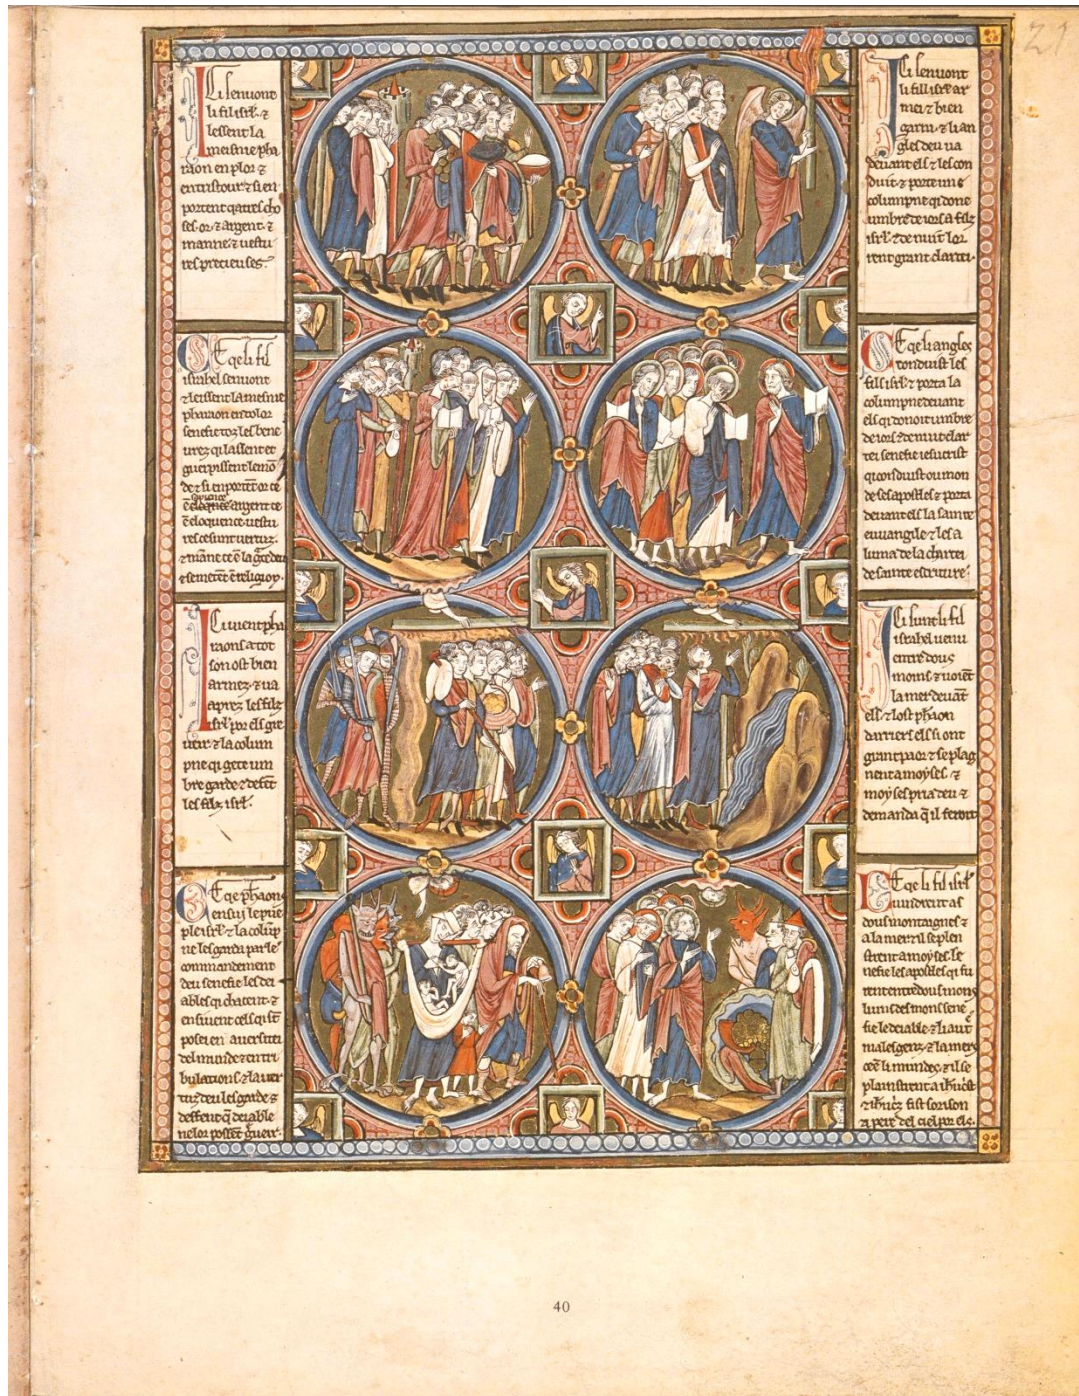 Ici senuont
li fil isrl. ⁊
lessent la
meisnie pha
raon en plor ⁊
en tristour ⁊ si en
portent qatres cho
ses. or. ⁊ argent. ⁊
manne. ⁊ uestu
res precieuses.
Ce qe li fil
israhel senuont
⁊ leissent la mesnie
pharaon en dolor
senefie toz les bene
urez qi lassent et
guerpissent le mon
de ⁊ si en portent or ce
argent ce
est eloquence uestu
res ce sunt uertuz.
⁊ manne ce est la grace deu
⁊ se metent en religion.
Ici uient pha
raons a tot
son ost bien
armez. ⁊ ua
apres les filz
isrl. por els
⁊ la colum
pne qi gete um
bre garde ⁊ defent
les filz isrl.
Ce qe pharaons
ensuj le pue
ple isrl. ⁊ la colump
ne les garda par le
commandement
deu senefie les dei
ables qi chacent. ⁊
ensiuent cels qi sunt
posei en auersitei
del munde ⁊ en tri
bulations. ⁊ la uer
tuz deu les garde ⁊
deffent qe deiable
ne lor possent
Ici senuont
li fil isrl. ar
mei ⁊ bien
garni. ⁊ li an
gles deu ua
deuant els ⁊ les con
duit. ⁊ porte une
columpne qi done
umbre de iors a filz
isrl. ⁊ de nuit lor
rent grant clartei.
Ce qe li angles
conduist les
fils isrl. ⁊ porta la
columpne deuant
els qi donoit umbre
de iors ⁊ de nuit clar
tei senefie iesucrist
qi conduist ou mon
de ses apostles ⁊ porta
deuant els la sainte
euuangile ⁊ les a
luma de la clartei
de sainte escriture.
Ici sunt li fil
israhel uenu
entre dous
mons. ⁊ uoient
la mer deuant
els. ⁊ lost pharaon
darriers els si ont
grant paor ⁊ se plag
nent a moyses. ⁊
moyses pria deu ⁊
demanda qe il feront
Ce qe li fil isrl.
uindrent as
dous montaignes ⁊
a la mer ⁊ il se plen
strent a moyses. se
nefie les apostles qi fu
rent entre dous mons
luns des mons sene
fie le deiable. ⁊ li autre
males genz. ⁊ la mers
ce est li mundes. ⁊ il se
plainstrent a ihucrist
⁊ ihucrist fist sorison
a pere del ciel por els.
21
40